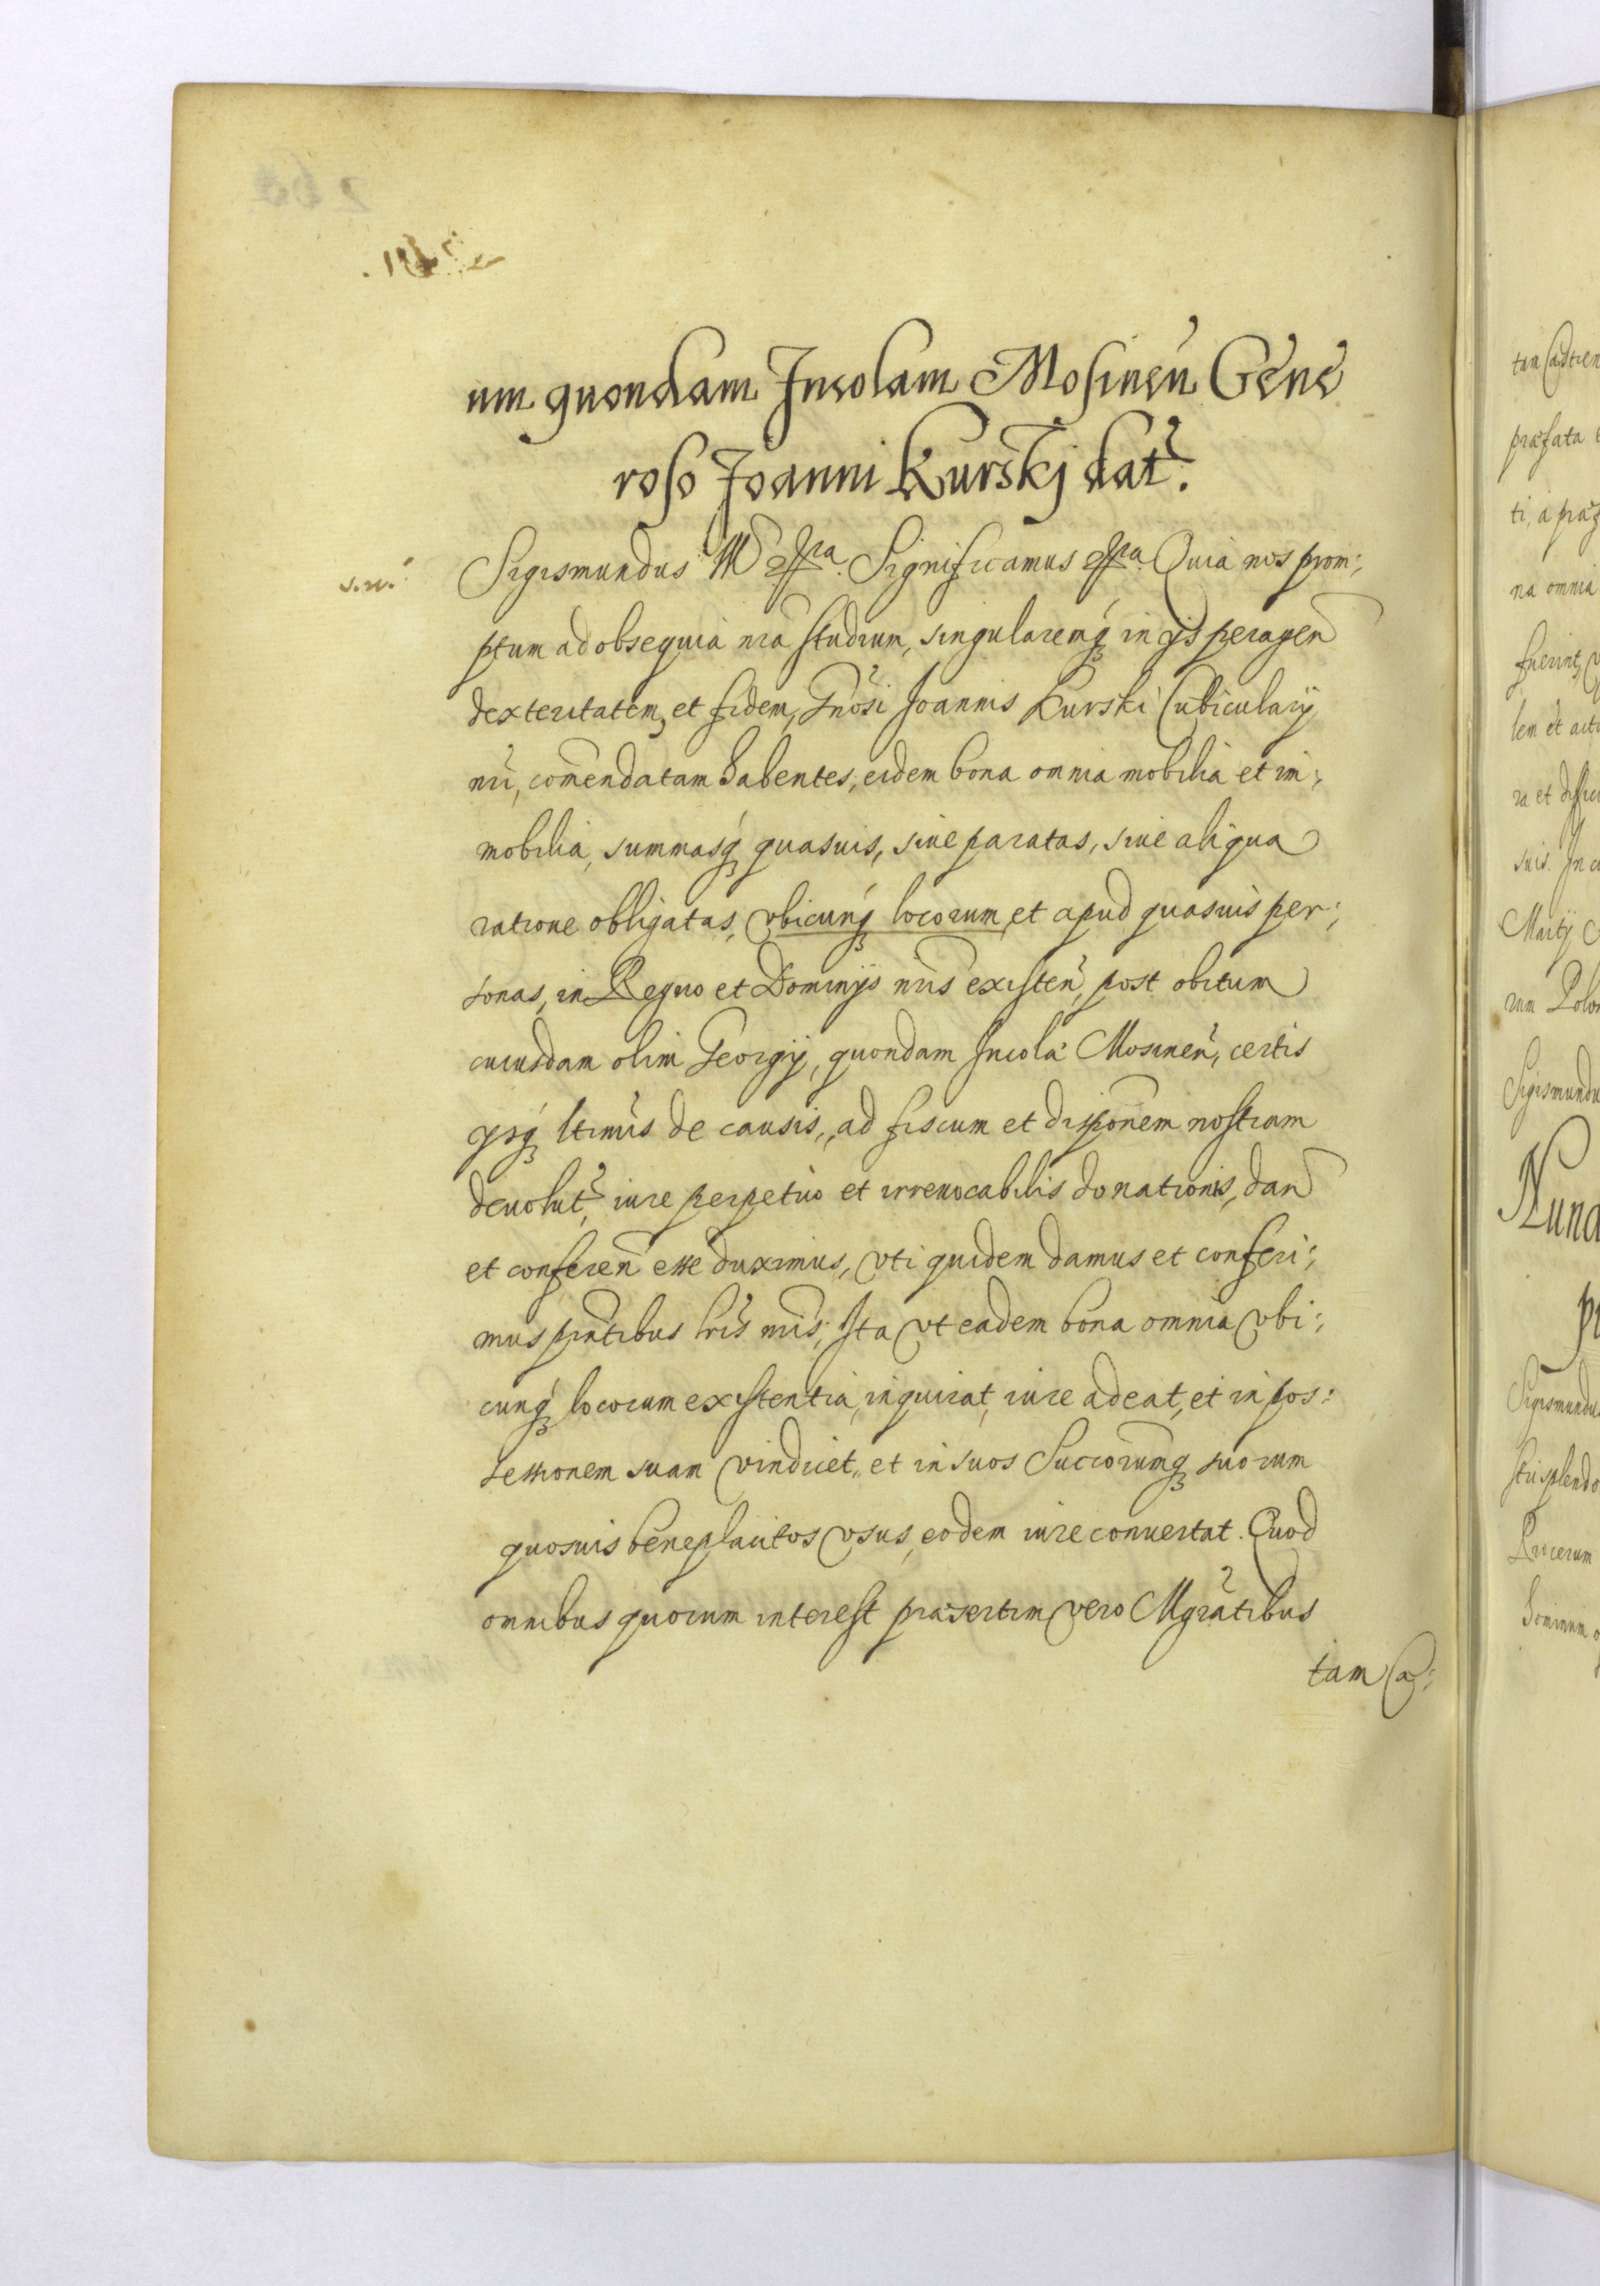 um quondam Incolam Mosinen Gene
roso Joanni Kurskj dat.
s.w.
Sigismundus III etra. Significamus etra. Quia nos prom:
ptum ad obsequia nra studium, singularemq in ijs peragen
dexteritatem, et fidem, Gnosi Joannis Kurski Cubicularij
nri, comendatam habentes, eidem bona omnia mobilia et im:
mobilia, summasq quasuis, siue paratas, siue aliqua
ratione obligatas, vbicunq locorum, et apud quasuis per:
sonas, in Regno et Dominijs nris existen, post obitum
cuiusdam olim Georgij, quondam Incola Mosinen, certis
ijsq ltimis de causis, ad fiscum et disponem nostram
deuolut, iure perpetuo et irreuocabilis donationis, dan
et conferen esse duximus, vti quidem damus et conferi:
mus pntibus lris nris, Ita vt eadem bona omnia vbi:
cunq locorum existentia, inquirat, iure adeat, et in pos:
sessionem suam vindicet, et in suos Succorumq suorum
quosuis beneplacitos vsus, eodem iure conuertat. Quod
omnibus quorum interest præsertim vero Mgratibus
tam Ca:
tam Castren
præfata
na omnia
fuerint,
suis. In
Martij
rum Polon
Sigismundu
Nund
Sigismundu
Procerum
hominum